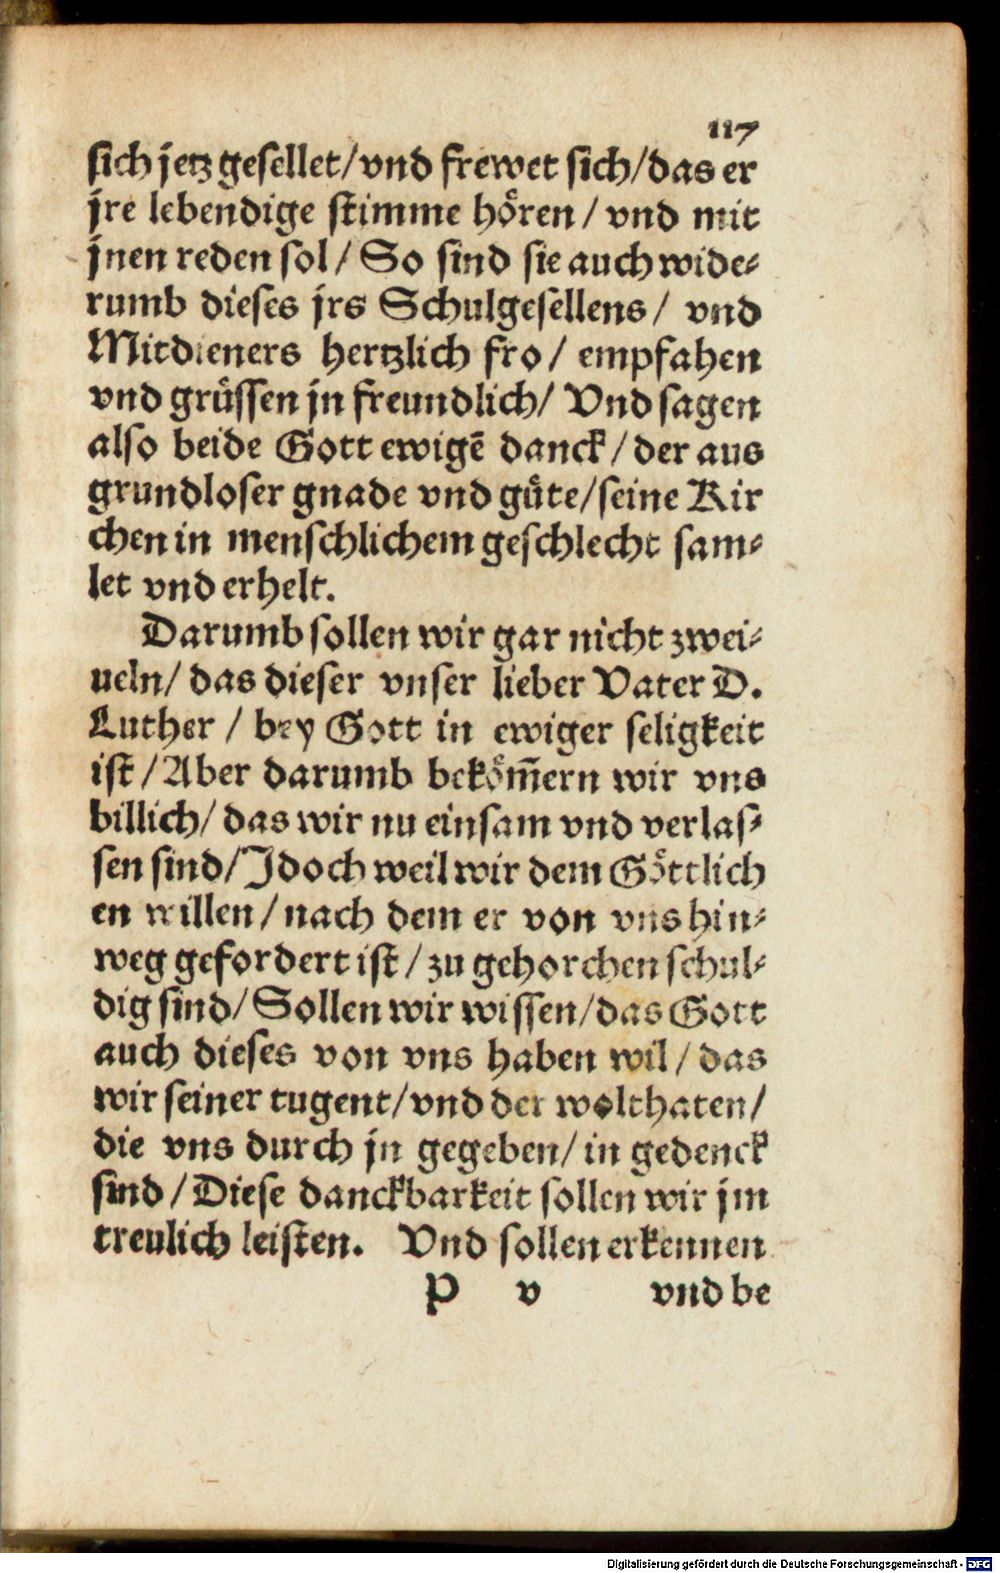 117
sich jetz gesellet/vnd frewet sich/das er
jre lebendige stimme hören/ vnd mit
jnen reden sol/ So sind sie auch wide⸗
rumb dieses jrs Schulgesellens/ vnd
Mitdieners hertzlich fro/ empfahen
vnd grüssen jn freundlich/ Vnd sagen
also beide Gott ewigē danck/der aus
grundloser gnade vnd güte/seine Kir
chen in menschlichem geschlecht sam⸗
let vnd erhelt.
Darumb sollen wir gar nicht zwei⸗
ueln/ das dieser vnser lieber Vater D.
Luther / bey Gott in ewiger seligkeit
ist/Aber darumb beköm̄ern wir vns
billich/ das wir nu einsam vnd verlas⸗
sen sind/Jdoch weil wir dem Göttlich
en willen/nach dem er von vns hin⸗
weg gefordert ist/zu gehorchen schul⸗
dig sind/Sollen wir wissen/das Gott
auch dieses von vns haben wil/das
wir seiner tugent/vnd der wolthaten/
die vns durch jn gegeben/in gedenck
sind/Diese danckbarkeit sollen wir jm
treulich leisten. Vnd sollen erkennen
P v vnd be
Digitalisierung gefördert durch die Deutsche Forschungsgemeinschaft - DFG